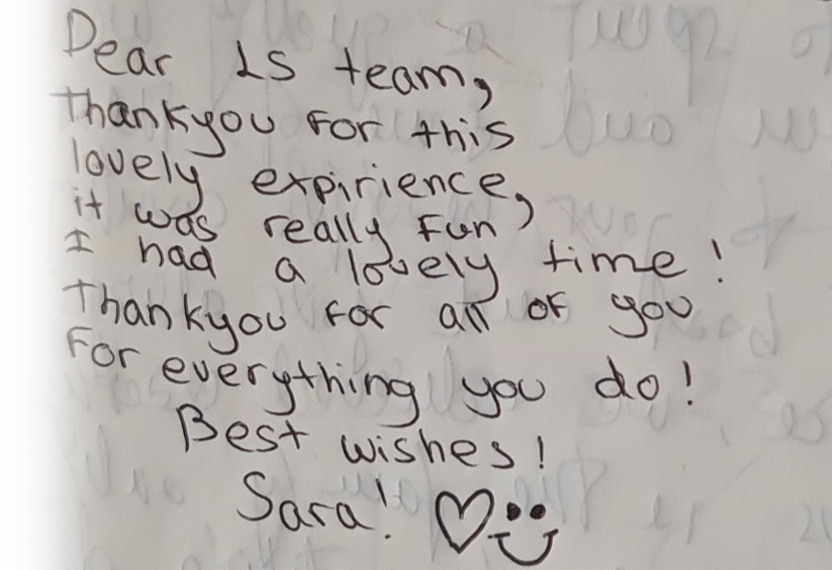 Dear LS team,
Thankyou for this
lovely expirience,
it was really fun,
I had a lovely time!
Thankyou for all of you
For everything you do!
Best wishes!
Sara!